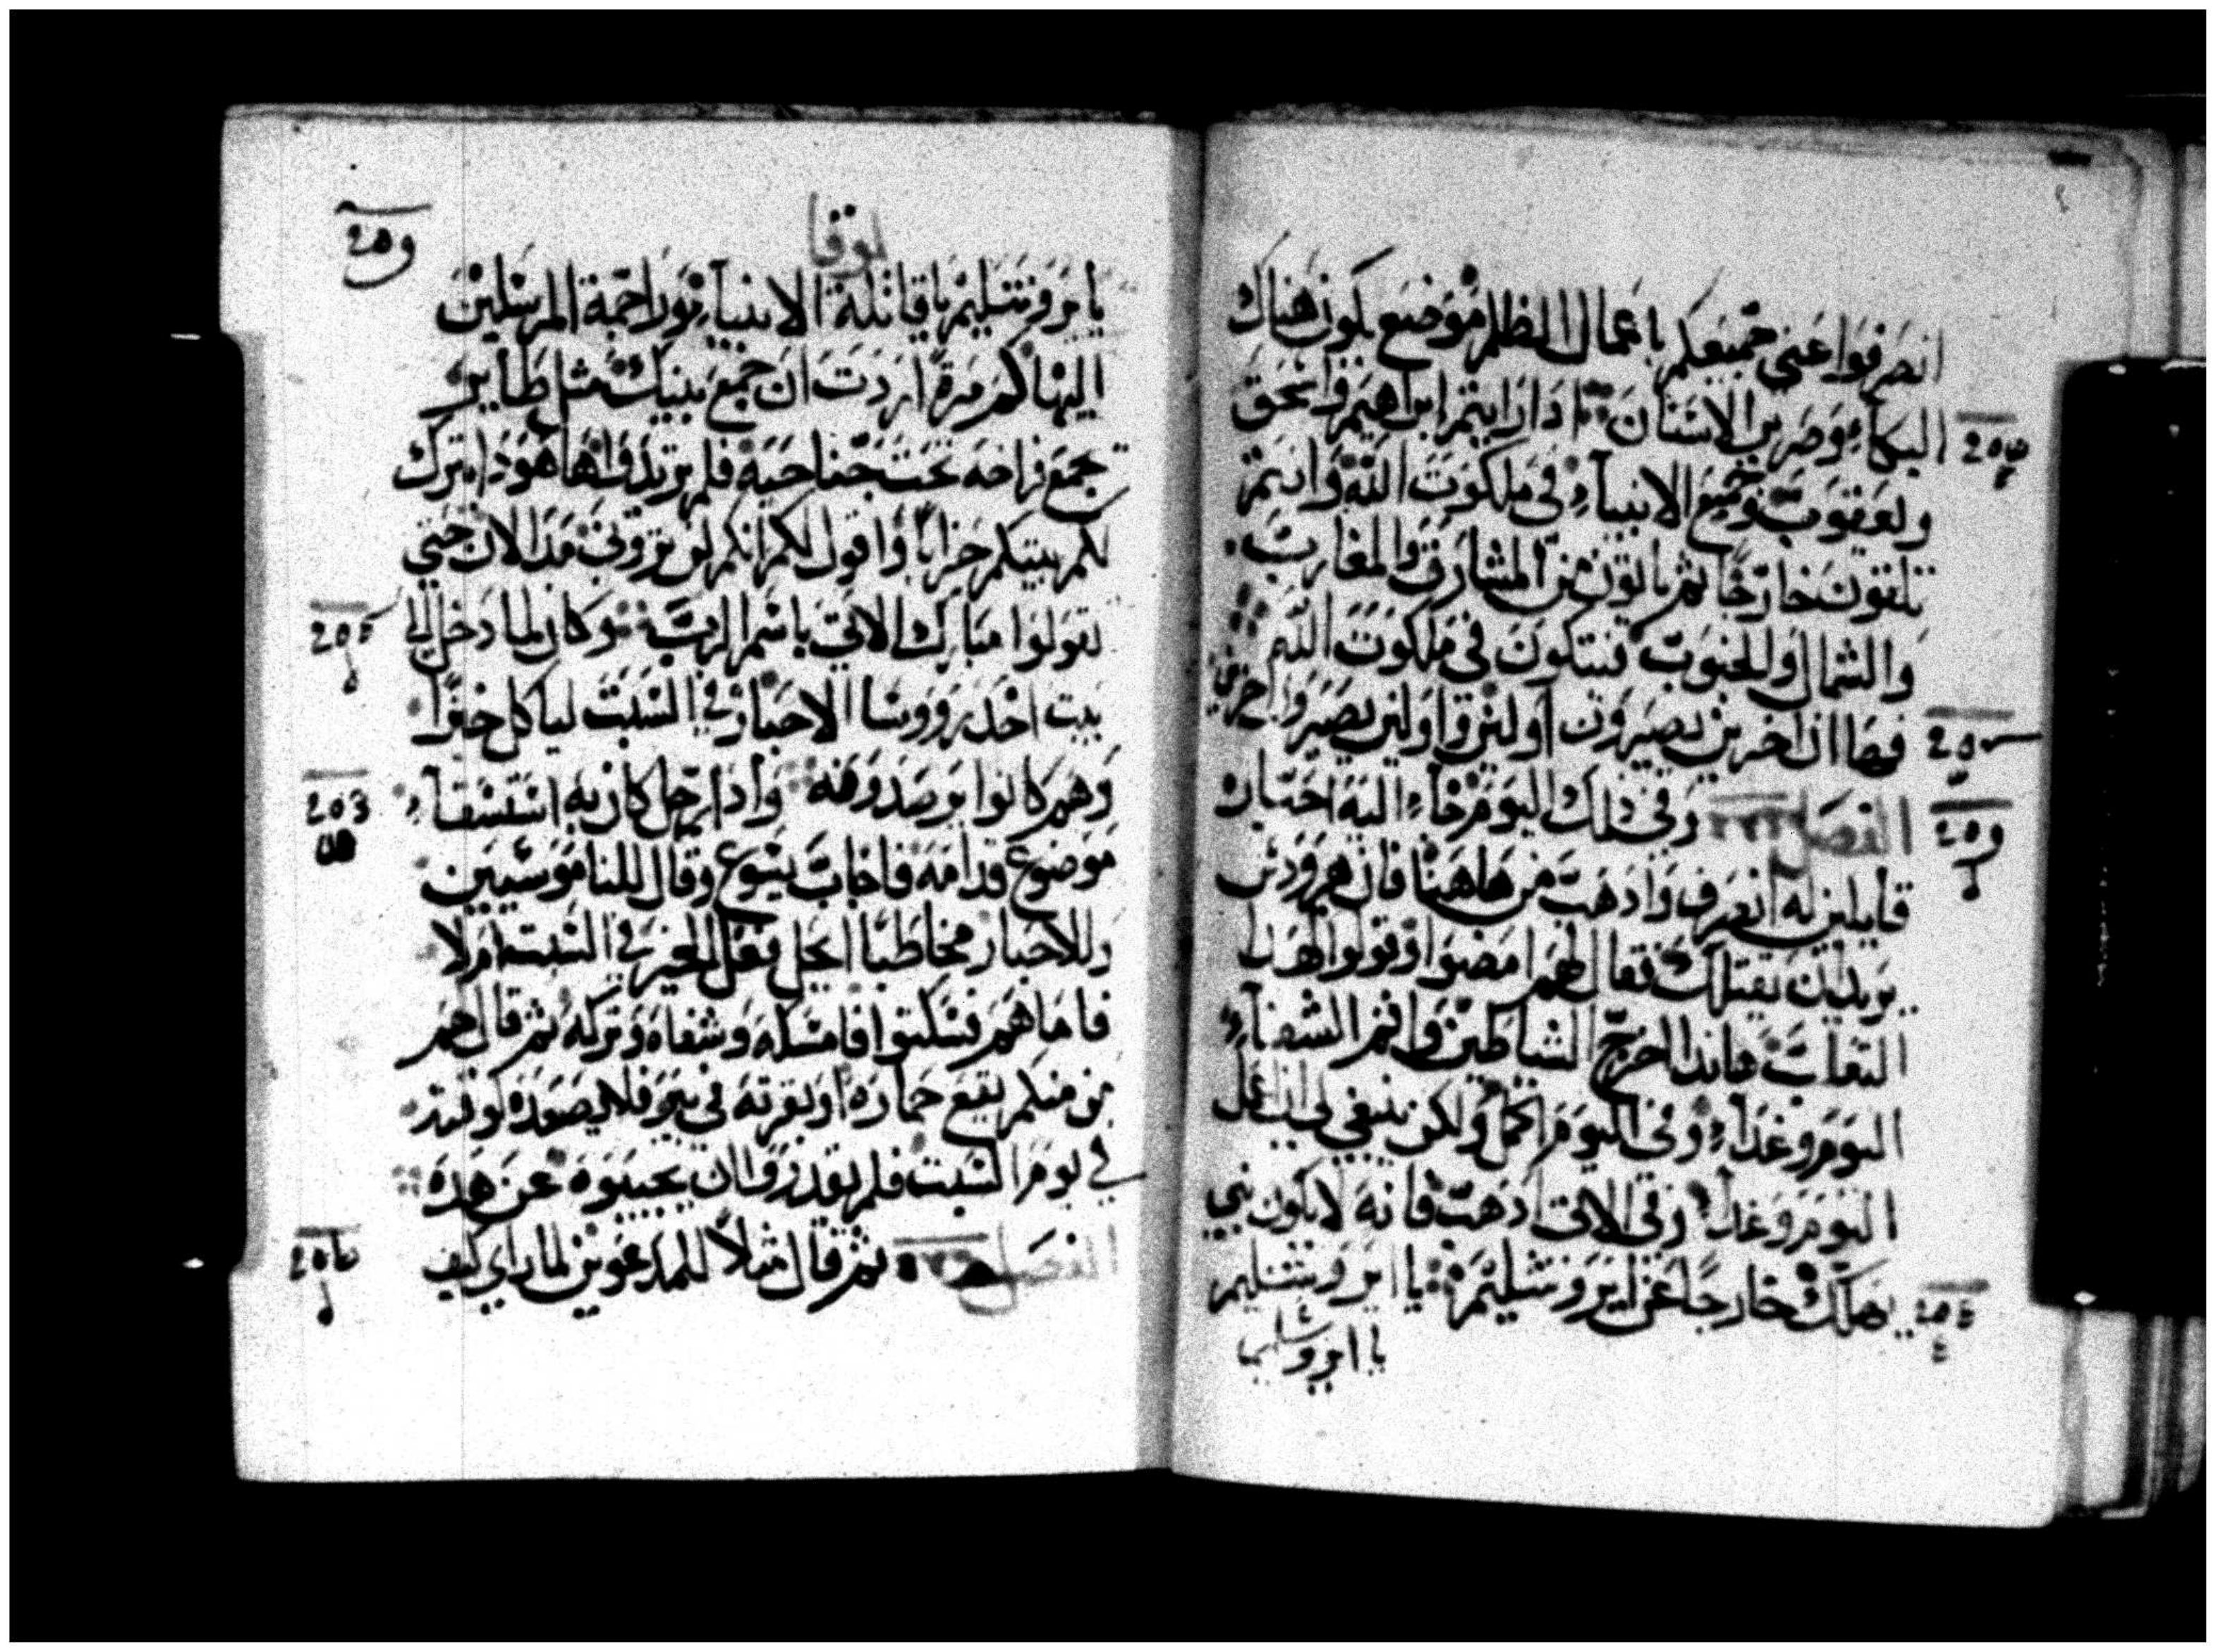 انصرفوا عني جميعكم يا عمال الظلم موضع يكون هناك
البكاء وصرير الاسنان اذا رايتم ابراهيم واسحق
ويعقوب وجميع الانبياء في ملكوت الله وانتم
تلقون خارجًا ثم ياتون من المشارق والمغارب
والشمال والجنوب فيتكون في ملكوت الله
فها ان اخرين يصيرون اولين واولين يصيروا اخرين
الفصل وفي ذلك اليوم جاء اليه احبار
قايلين له انصرف واذهب من هاهنا فان هيرودس
يريد ان يقتلك فقال لهم امضوا وقولوا لهدا
الثعلب هاندا اخرج الشياطين واتم الشفاء
اليوم وغداء وفي اليوم اكمل ولكن ينبغي لي ان اعمل
اليوم وغدا وفي الاتي اذهب فانه لا يكون نبي
يهلك خارجًا عن ايروشليم يا ايروشليم
يا ايروشليم
لوقا
يا يروشليم يا قاتلة الانبياء وراجمة المرسلين
اليها كم مرة اردت ان جمع بنيك مثل طاير
يجمع فراخه تحت جناحيه فلم تريدوا هاهودا يترك
لكم بيتكم خرابًا واقول لكم انكم لن تروني مند الان حتي
تقولوا مبارك الاتي باسم الرب وكان لما دخل الي
بيت احد رووسا الاحبار في السبت لياكل خبزًا
وهم كانوا يرصدونه وادا رجل كان به استسقاء
موضوع قدامه فاجاب يسوع وقال للناموسيين
وللاحبار مخاطبًا ايحل فعل الخير في السبت ام لا
فاما هم فسكتوا فامسكه وشفاه وتركه ثم قال لهم
من منكم يقع حماره او بقرته في بير فلا يصعده لوقته
في يوم السبت فلم يقدروا ان يجيبوه عن هده
الفصل ثم قال مثلاً للمدعوين لما راي كيف